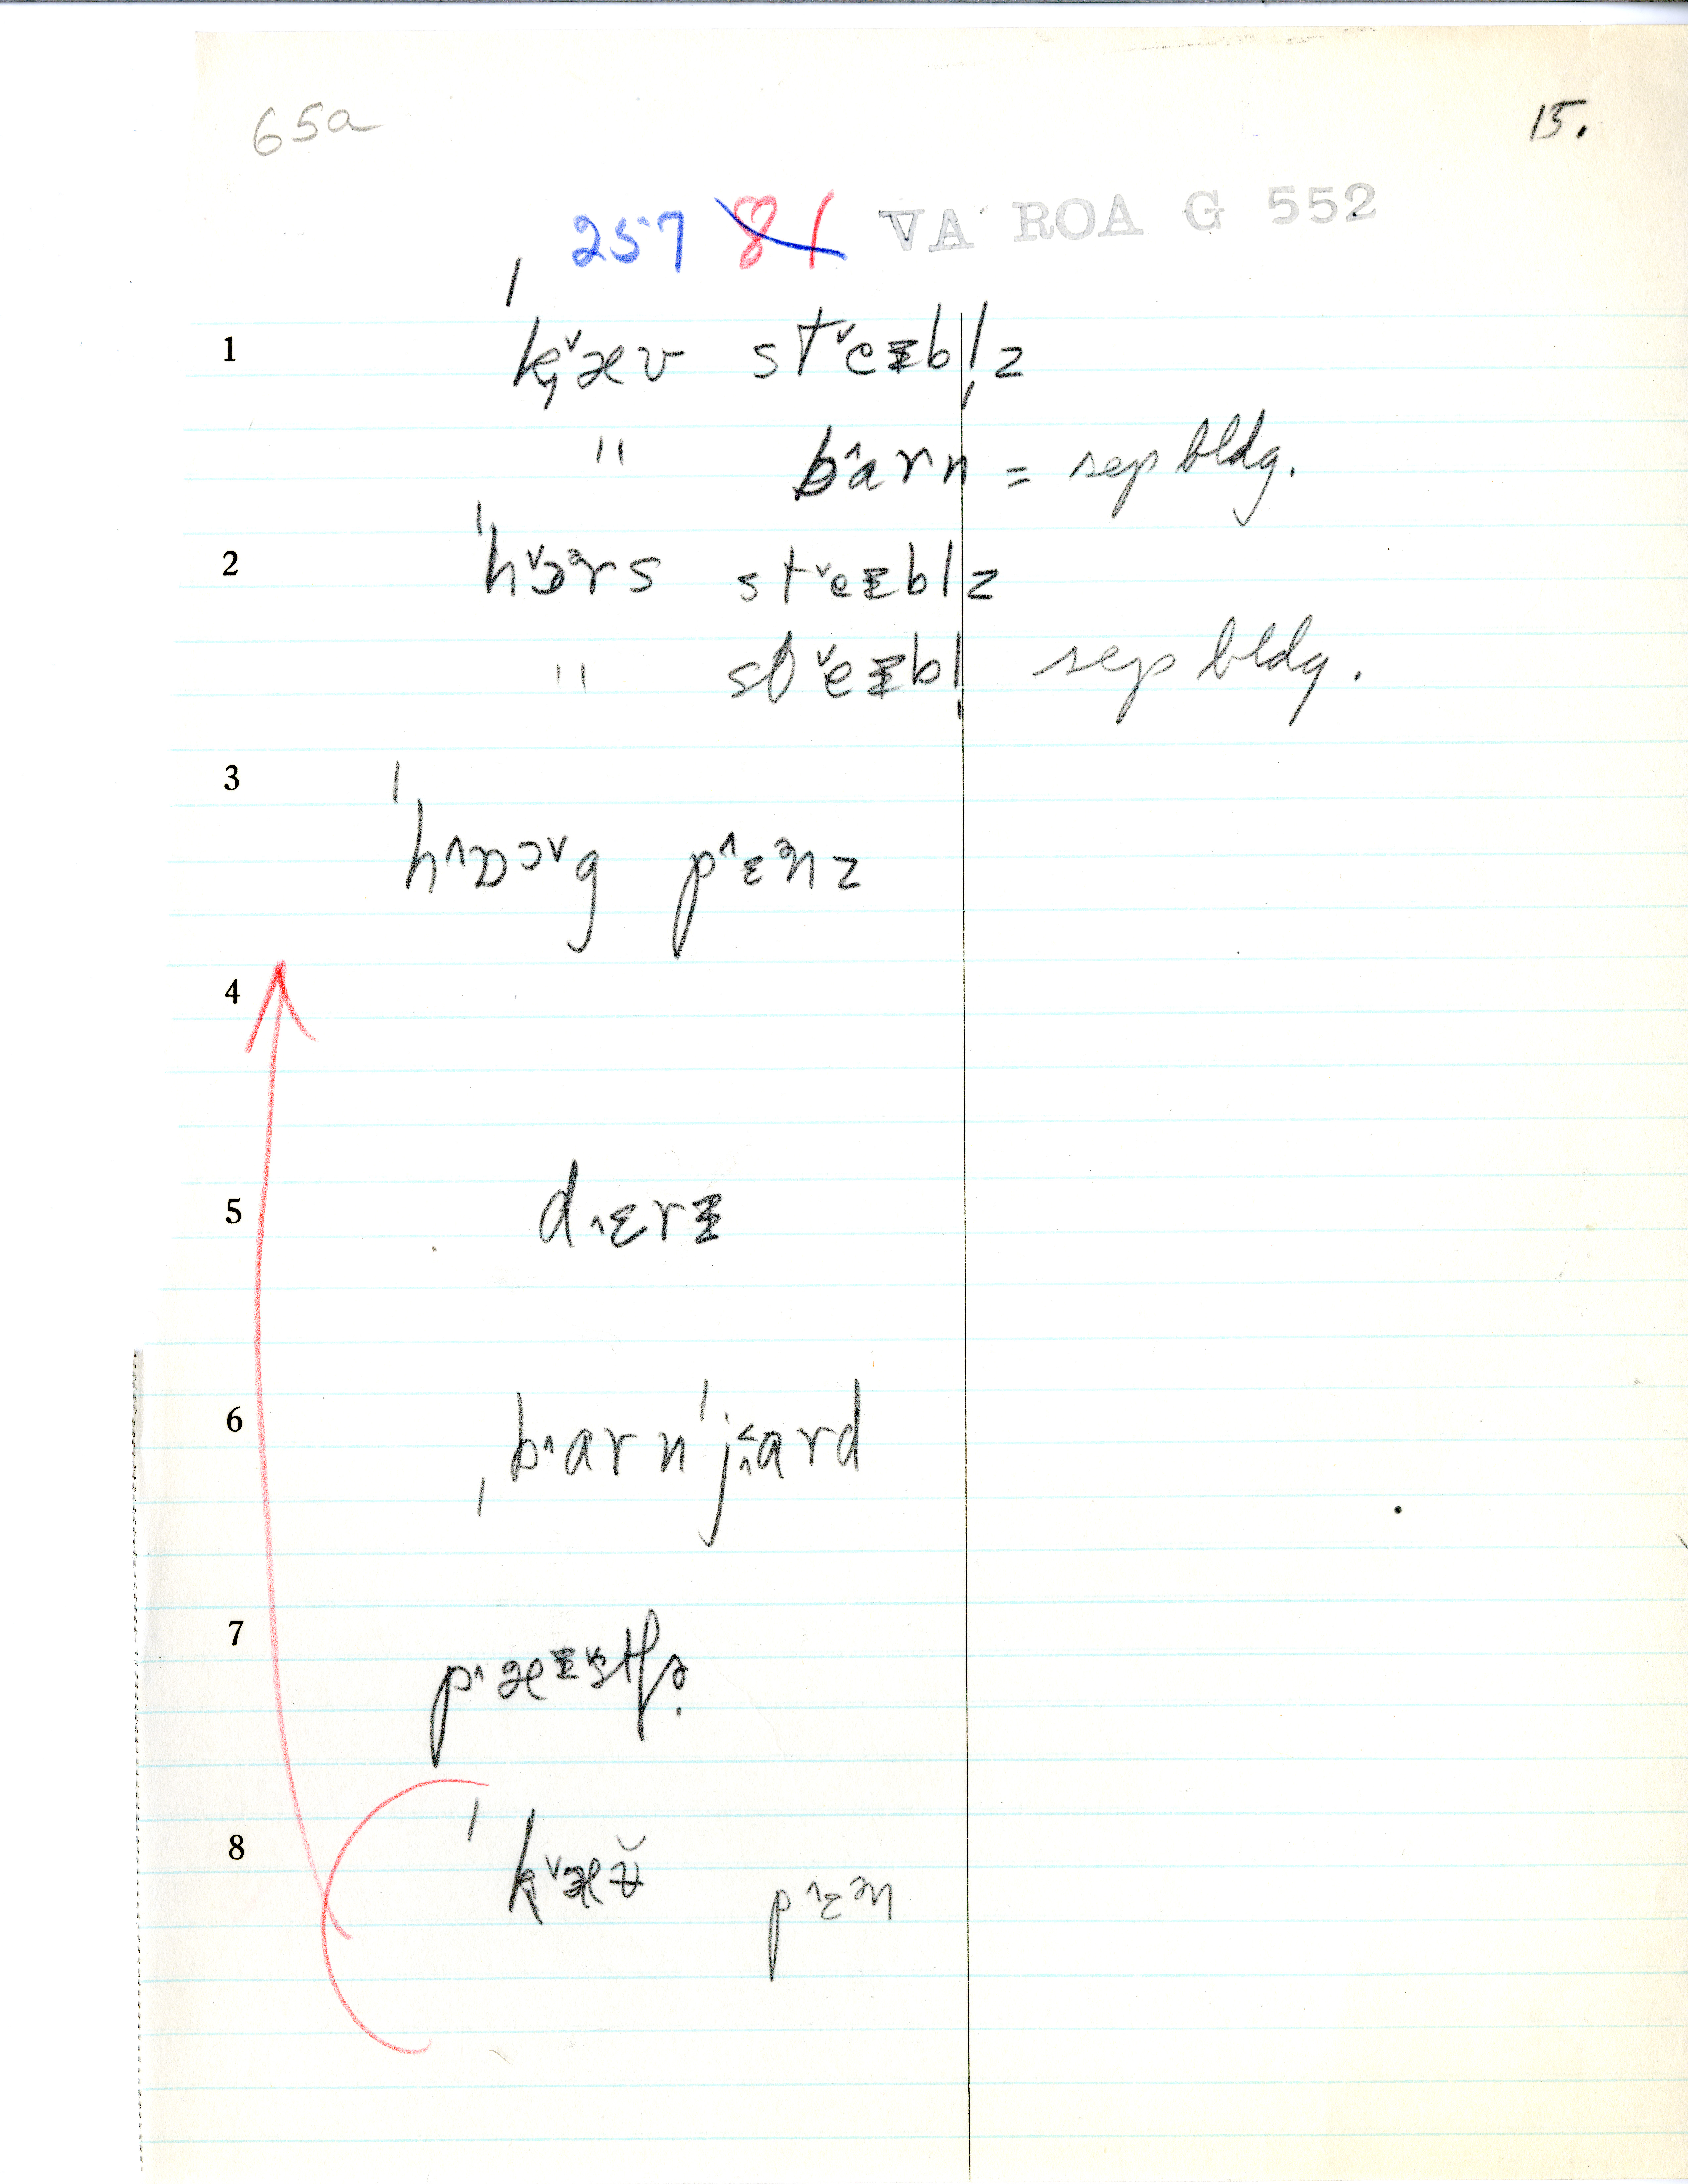 65a
15.
257 81 VA ROA G 552
1 ˈk̟ˇæʊ stˇeɪbl̩z
" bˆarn = sep bldg.
2 ˈhˇɔɜrs stˇeɪblz
" stˇeɪbl̩ sep bldg.
3 ˈhˆɒɔˇg pˆɛᵊnz
4
5 dˆɛrɪ
6 ˌbˆarnˈjˆard
7
8 ˈkˇæʊ̆ pˆɛᵊn